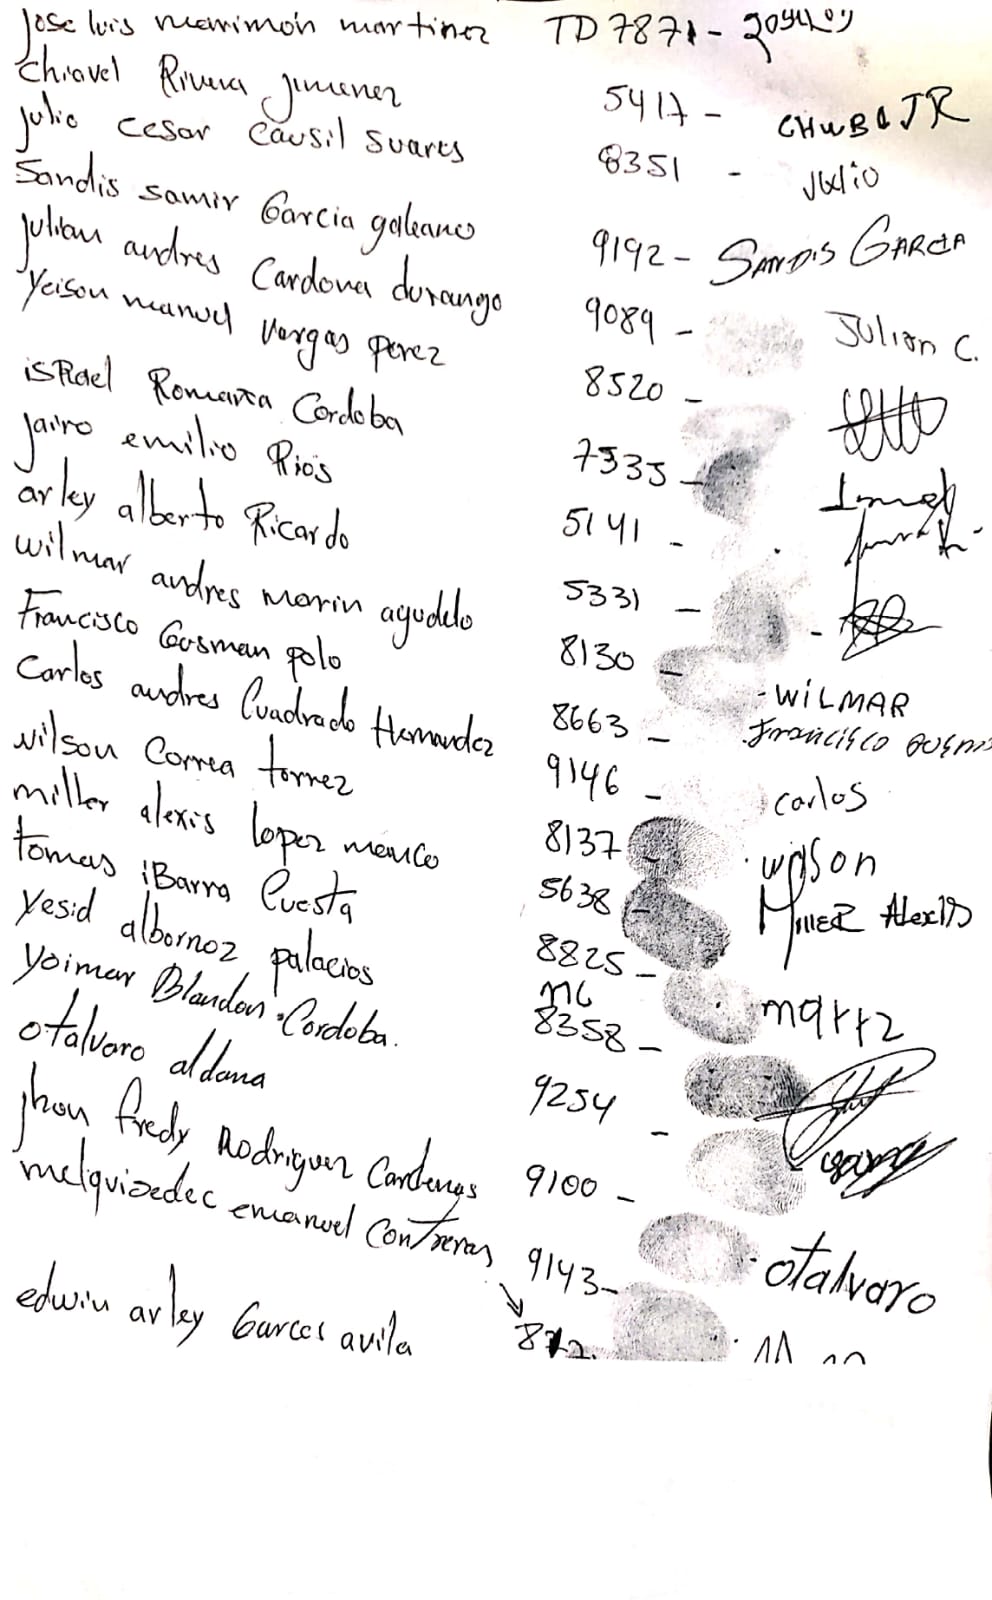 jose luis marimon martinez TD 7871 -
chiavel Rivera jimenez 5417 - CHUBA JR
julio cesar causil suares 8351 - Julio
Sandis samir Garcia galeano 9192 - SANDIS GARCIA
julian andres Cardona durango 9089 - Julian C.
Yeison manuel vargas perez 8520 -
isRael Romaña Cordoba 7535 -
jairo emilio Rios 5141 -
arley alberto Ricardo 5331 -
wilmar andres marin agudelo 8130 - WILMAR
Francisco Gusman polo 8663 - Francisco Gusm
Carlos andres Cuadrado Hernandez 9146 - carlos
wilson Correa torrez 8137 - wilson
miller alexis lopez 5638 - MILLER AlexIS
tomas iBarra Cuesta 8825 -
yesid albornoz palacios 8358 -
yoimar Blandon Cordoba. 9254 -
otalvaro aldana 9100 - otalvaro
jhon fredy Rodriguez Cardenas 9143 -
melquisedec emanuel Contreras
edwin arley Garces avila